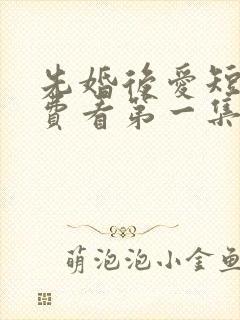 先婚後愛短
費看第一集
萌泡泡小金魚